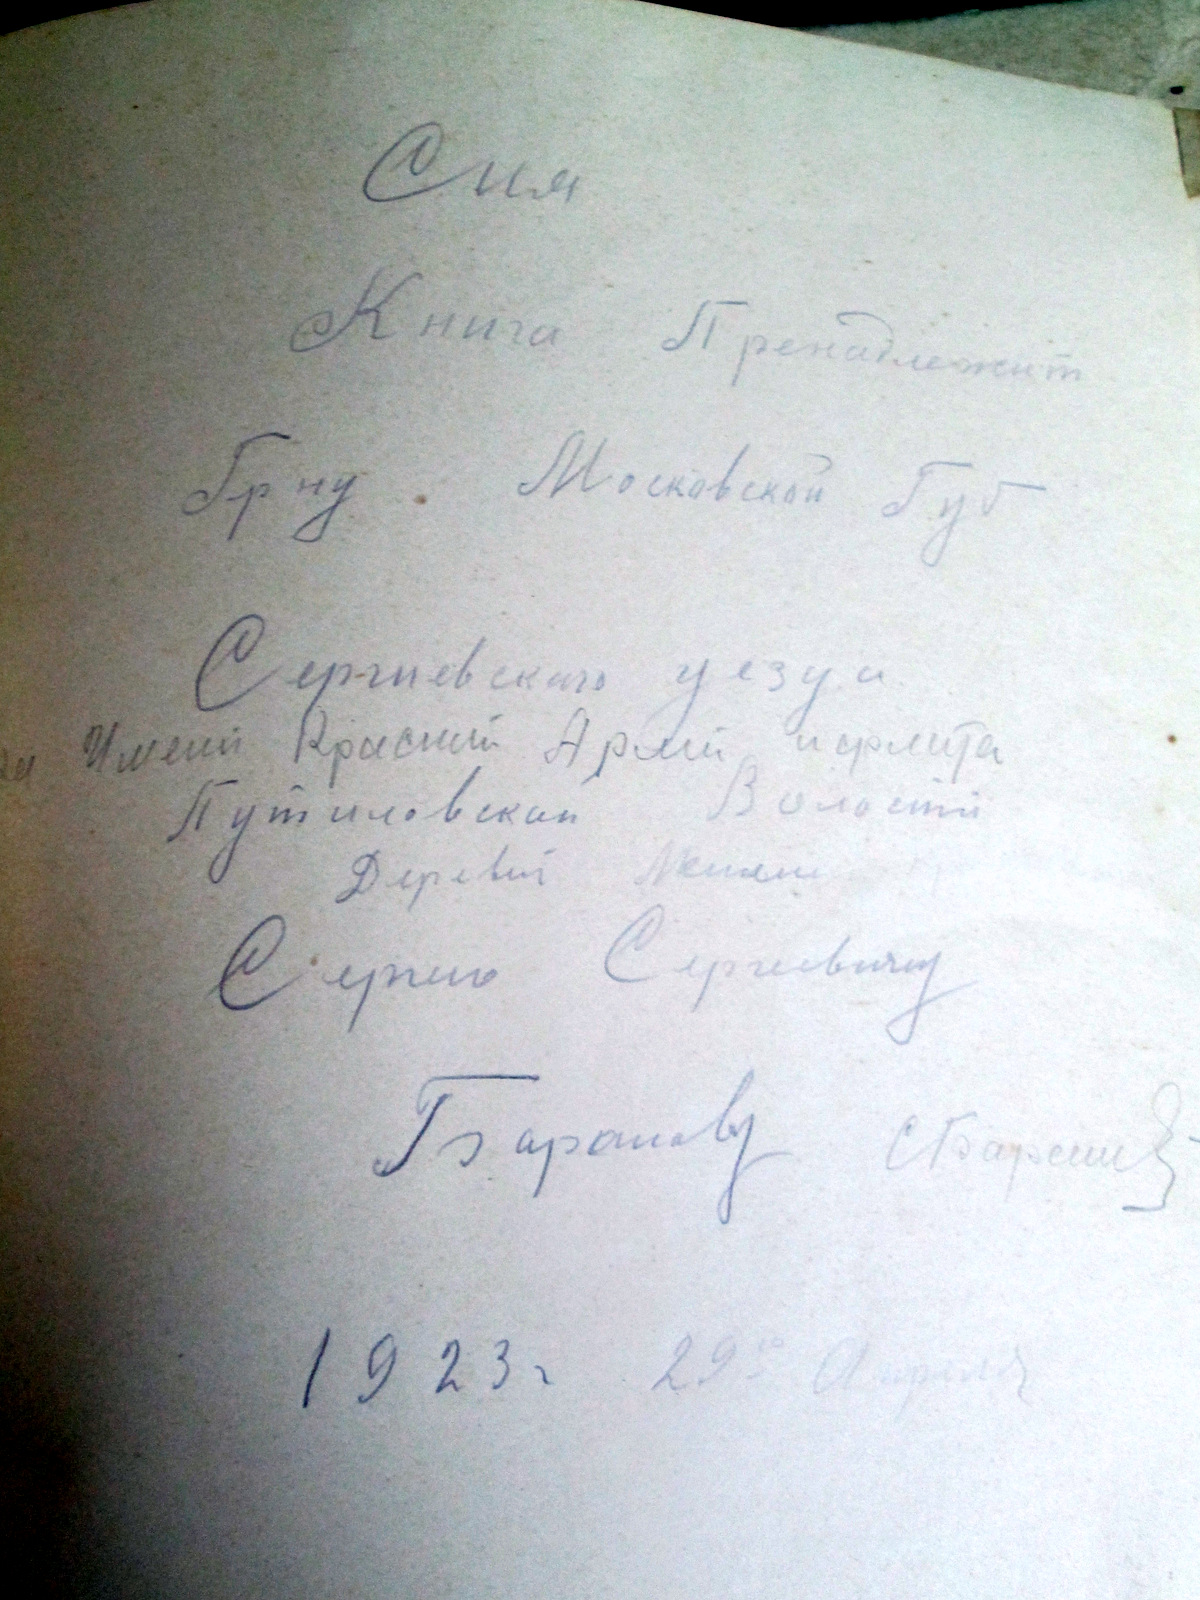 Сия
Книга Пренадлежит
Грну Московской Губ
Сергиевскаго уезуа
Имени Красний Армий
Путиловской Волости
Деревни
Сергею Сергеевичу
Баранову
1923 г 29го Апреля